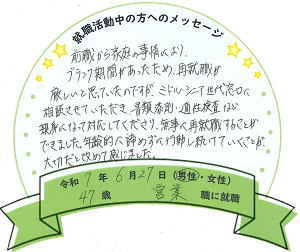 就職活動中の方へのメッセージ
前職から家庭の事情により、
ブランク期間があったため、再就職が
厳しいと思っていたのですが、ミドル・シニア世代窓口に
相談させていただき、書類添削・適性検査など
親身になって対応してくださり、無事に再就職することが
できました。年齢的に諦めずに行動し続けていくことが、
大切だと改めて感じました。
令和 7 年 6 月 27 日 (男性・女性)
47 歳 営業 職に就職